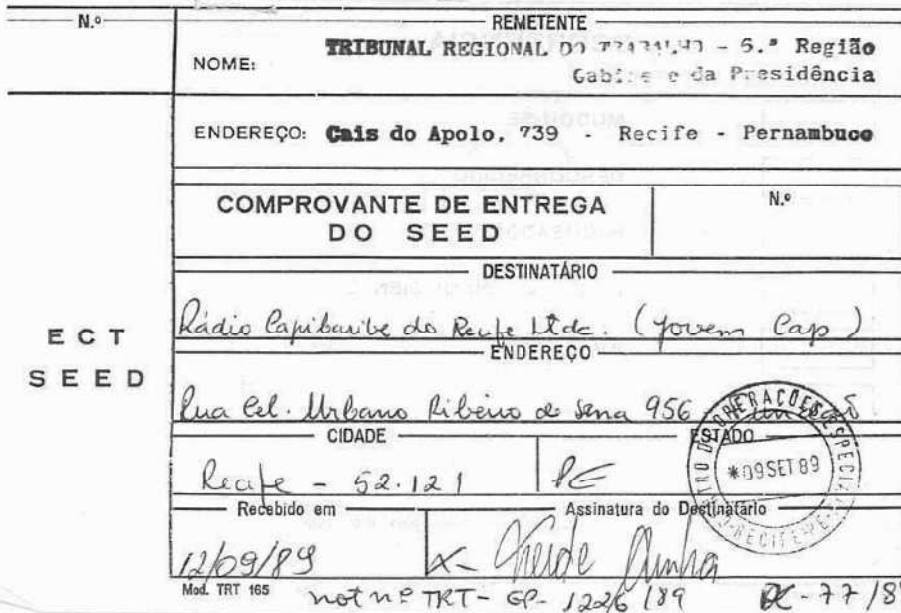 N.º
REMETENTE
NOME: TRIBUNAL REGIONAL DO TRABALHO - 6.ª Região
Gabinete da Presidência
ENDEREÇO: Cais do Apolo, 739 - Recife - Pernambuco
COMPROVANTE DE ENTREGA
DO SEED
N.º
DESTINATÁRIO
Rádio Capibaribe do Recife Ltda. (Jovem Cap)
ECT
SEED
ENDEREÇO
Rua Cel. Urbano Ribeiro de Sena 956
CIDADE
ESTADO
Recife - 52.121
PE
*09 SET 89
Recebido em
Assinatura do Destinatário
12/09/89
x- Cunha
Mod. TRT 165
not nº TRT- GP- 1226/89
DC - 77/8